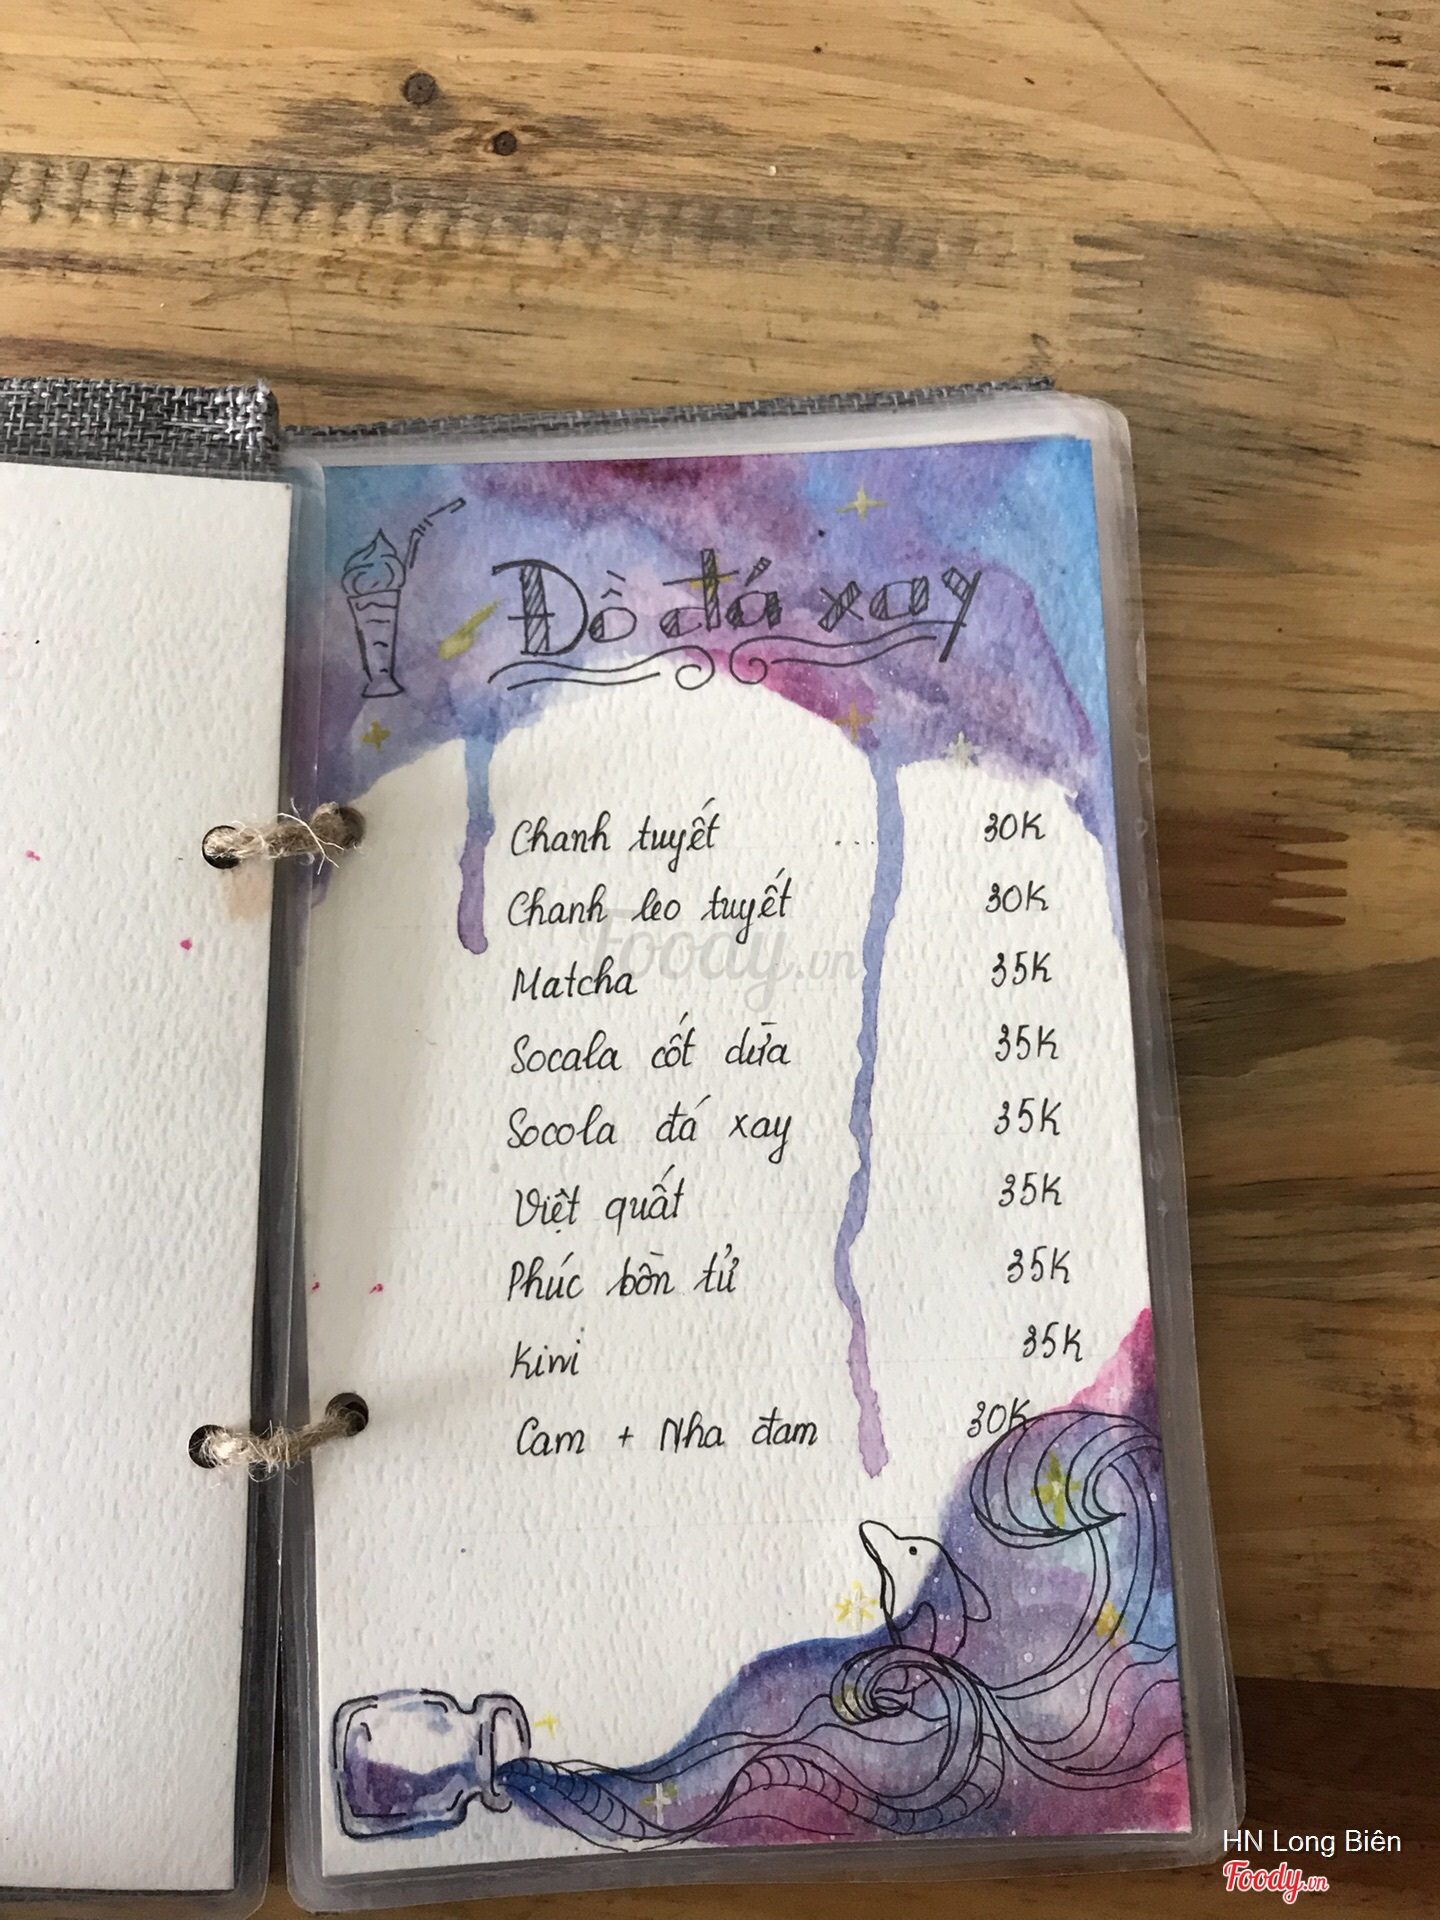 Đồ đá xay
Chanh tuyết .... 30K
Chanh leo tuyết 30K
Matcha 35K
Socala cốt dừa 35K
Socola đá xay 35K
Việt quất 35K
Phúc bồn tử 35K
Kiwi 35K
Cam + Nha đam 30K
Foody.vn
HN Long Biên
Foody.vn